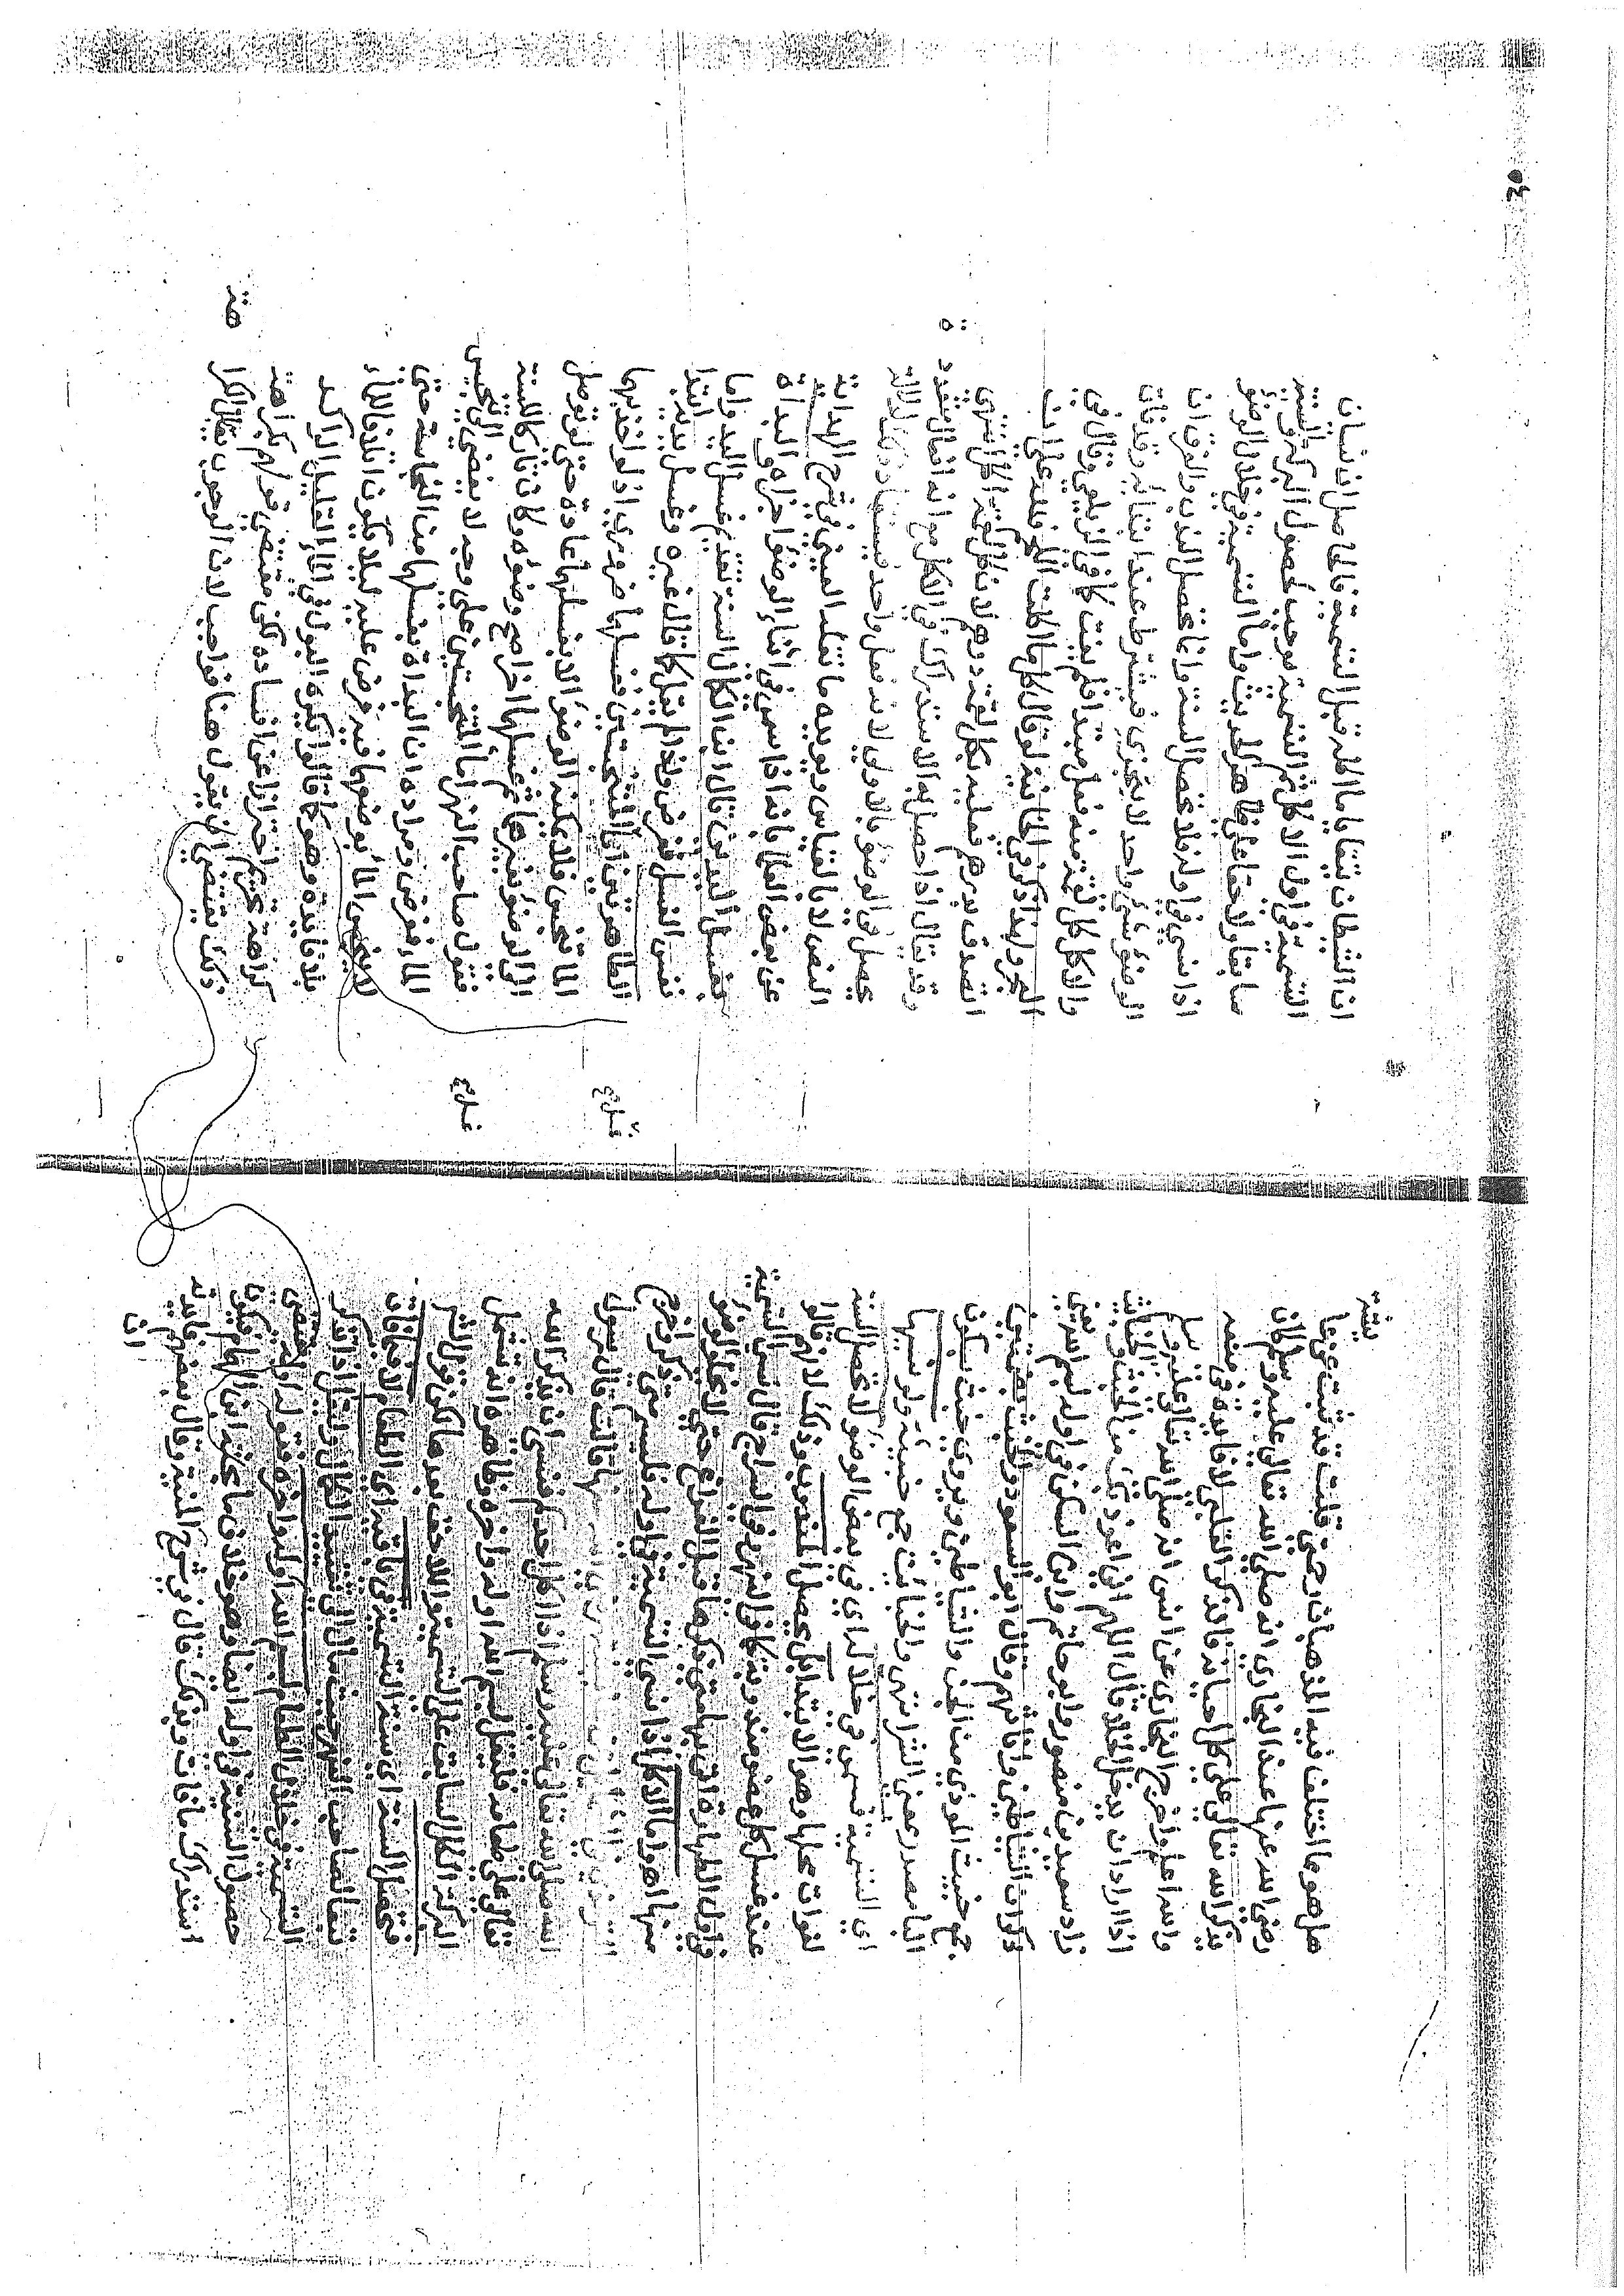 هل هو مما اختلف فيه المذهبان رحمتي قلت قد ثبت عنها
رضي الله عنها عند البخاري انه صلى الله تعالى عليه وسلم كان
يذكر الله تعالى على كل احيانه فالذكر القلبي لا فايدة في منعه
والله اعلم واخرج البخاري عن انس انه صلى الله تعالى عليه وسلم
اذا اراد ان يدخل الخلاء قال اللهم اني اعوذ بك من الخبث والخبائث
زاد سعيد بن منصور وابو حاتم وابن السكن في اوله بسم الله
ذكران الشياطين واناثهم وقال ابو السعود والخبث بضمتين
جمع خبيث الموذي من الجن والشياطين ويروى خبث بسكون
البا مصدر بمعنى الشر انتهى والخبائث جمع خبيثة ولو نسيها
اي التسمية فسمى في خلاله اي في بعض الوضوء لا تحصل السنة
لفوات محلها وهو الابتدا بل يحصل المندوب وذلك لانهم قالوا
عند غسل كل عضو مندوبة كما في النهر وفي السراج قال نسي التسمية
في اول الطهارة اتى بها متى ذكرها قبل الفراغ حتى لا يخلو الوضو
منها اه واما الاكل اذا نسي التسمية في اوله فليسم متى ذكر واخرج
قالت قال رسول
الله صلى الله تعالى عليه وسلم اذا اكل احدكم فنسي ان يذكر الله
تعالى على طعامه فليقل بسم الله اوله واخره وظاهره انه تشتمل
البركة الكل السابق على التسمية واللاحق بعدها لكن قول الشم
فتحصل السنة اي سنة التسمية في باقيه اي الطعام لا فيما فات
تبعا لصاحب النهر حيث مال الى تقييد الكمال وليقل اذا ذكر
التسمية في خلال الطعام بسم الله اوله واخره فقوله اوله يقتضي
حصول السنة في اوله ايضا وهو خلاف ما بحثه ابن الهمام فيكون
استدراك ما فات وبذلك قال في شرح المنية وقال بعضهم فائدته
ان
ان الشيطان يتقايا ما اكله قبل التسمية فالحاصل ان نسيان
التسمية في اول الاكل ثم التسمية توجب حصول البركة والسنة
سابقا ولاحقا على ظاهر الحديث واما التسمية في خلال الوضوء
اذا نسي في اوله فلا تحصل السنة وانما تحصل الندب والفرق ان
الوضوء شي واحد لا يتجزى فيشترط عند ابتدائه وقد فات
والاكل كل لقمة منه فعل مبتدا فلم يفت كما في الزيلعي وقال في
البحر ولهذا ذكر في الخانية لو قال كلما اكلت اللحم فلله علي ان
اتصدق بدرهم فعليه بكل لقمة درهم لان كل لقمة اكل انتهى
وقد يقال اذا حصل به الاستدراك في الاكل مع انه افعال متعددة
يحصل في الوضوء بالاولى لانه فعل واحد
النص لا بالقياس ويويده ما نقله العيني في شرح الهداية
عن بعض العلما بانه اذا سمى في اثناء الوضوء اجزاه والبداة
بغسل اليدين قال ابن الكمال السنة تقديم غسل اليد واما
نفس الغسل ففرض ولهذا لم يقل كما قال غيره وغسل يديه ابتدا
الطاهرتين اما المتنجستين فغسلهما ضروري اذ لو اخذ بهما
الماء تنجس فلا يمكنه الوضوء الا بغسلهما عادة حتى لو توصل
الى الوضوء بغيرهما ثم غسلهما اخرا صح وضوءه وكان تاركا للسنة
فقول صاحب النهر اما المتنجستين على وجه لا يفضي الى تنجيس
الماء ففرض مراده ان البداة بغسلهما من النجاسة حتى
لا يتنجس الماء بوضعهما فيه فرض عليه ليلا يكون اتلافا للماء
بلا فايدة وهو كما قالوا يكره البول في الماء القليل الراكد
كراهة تحريم احترازا عن افساده لكن مقتضى قولهم بكراهة
ذلك يقتضي ان يقول هنا فواجب لان الوجوب يقابل الكرا
هة